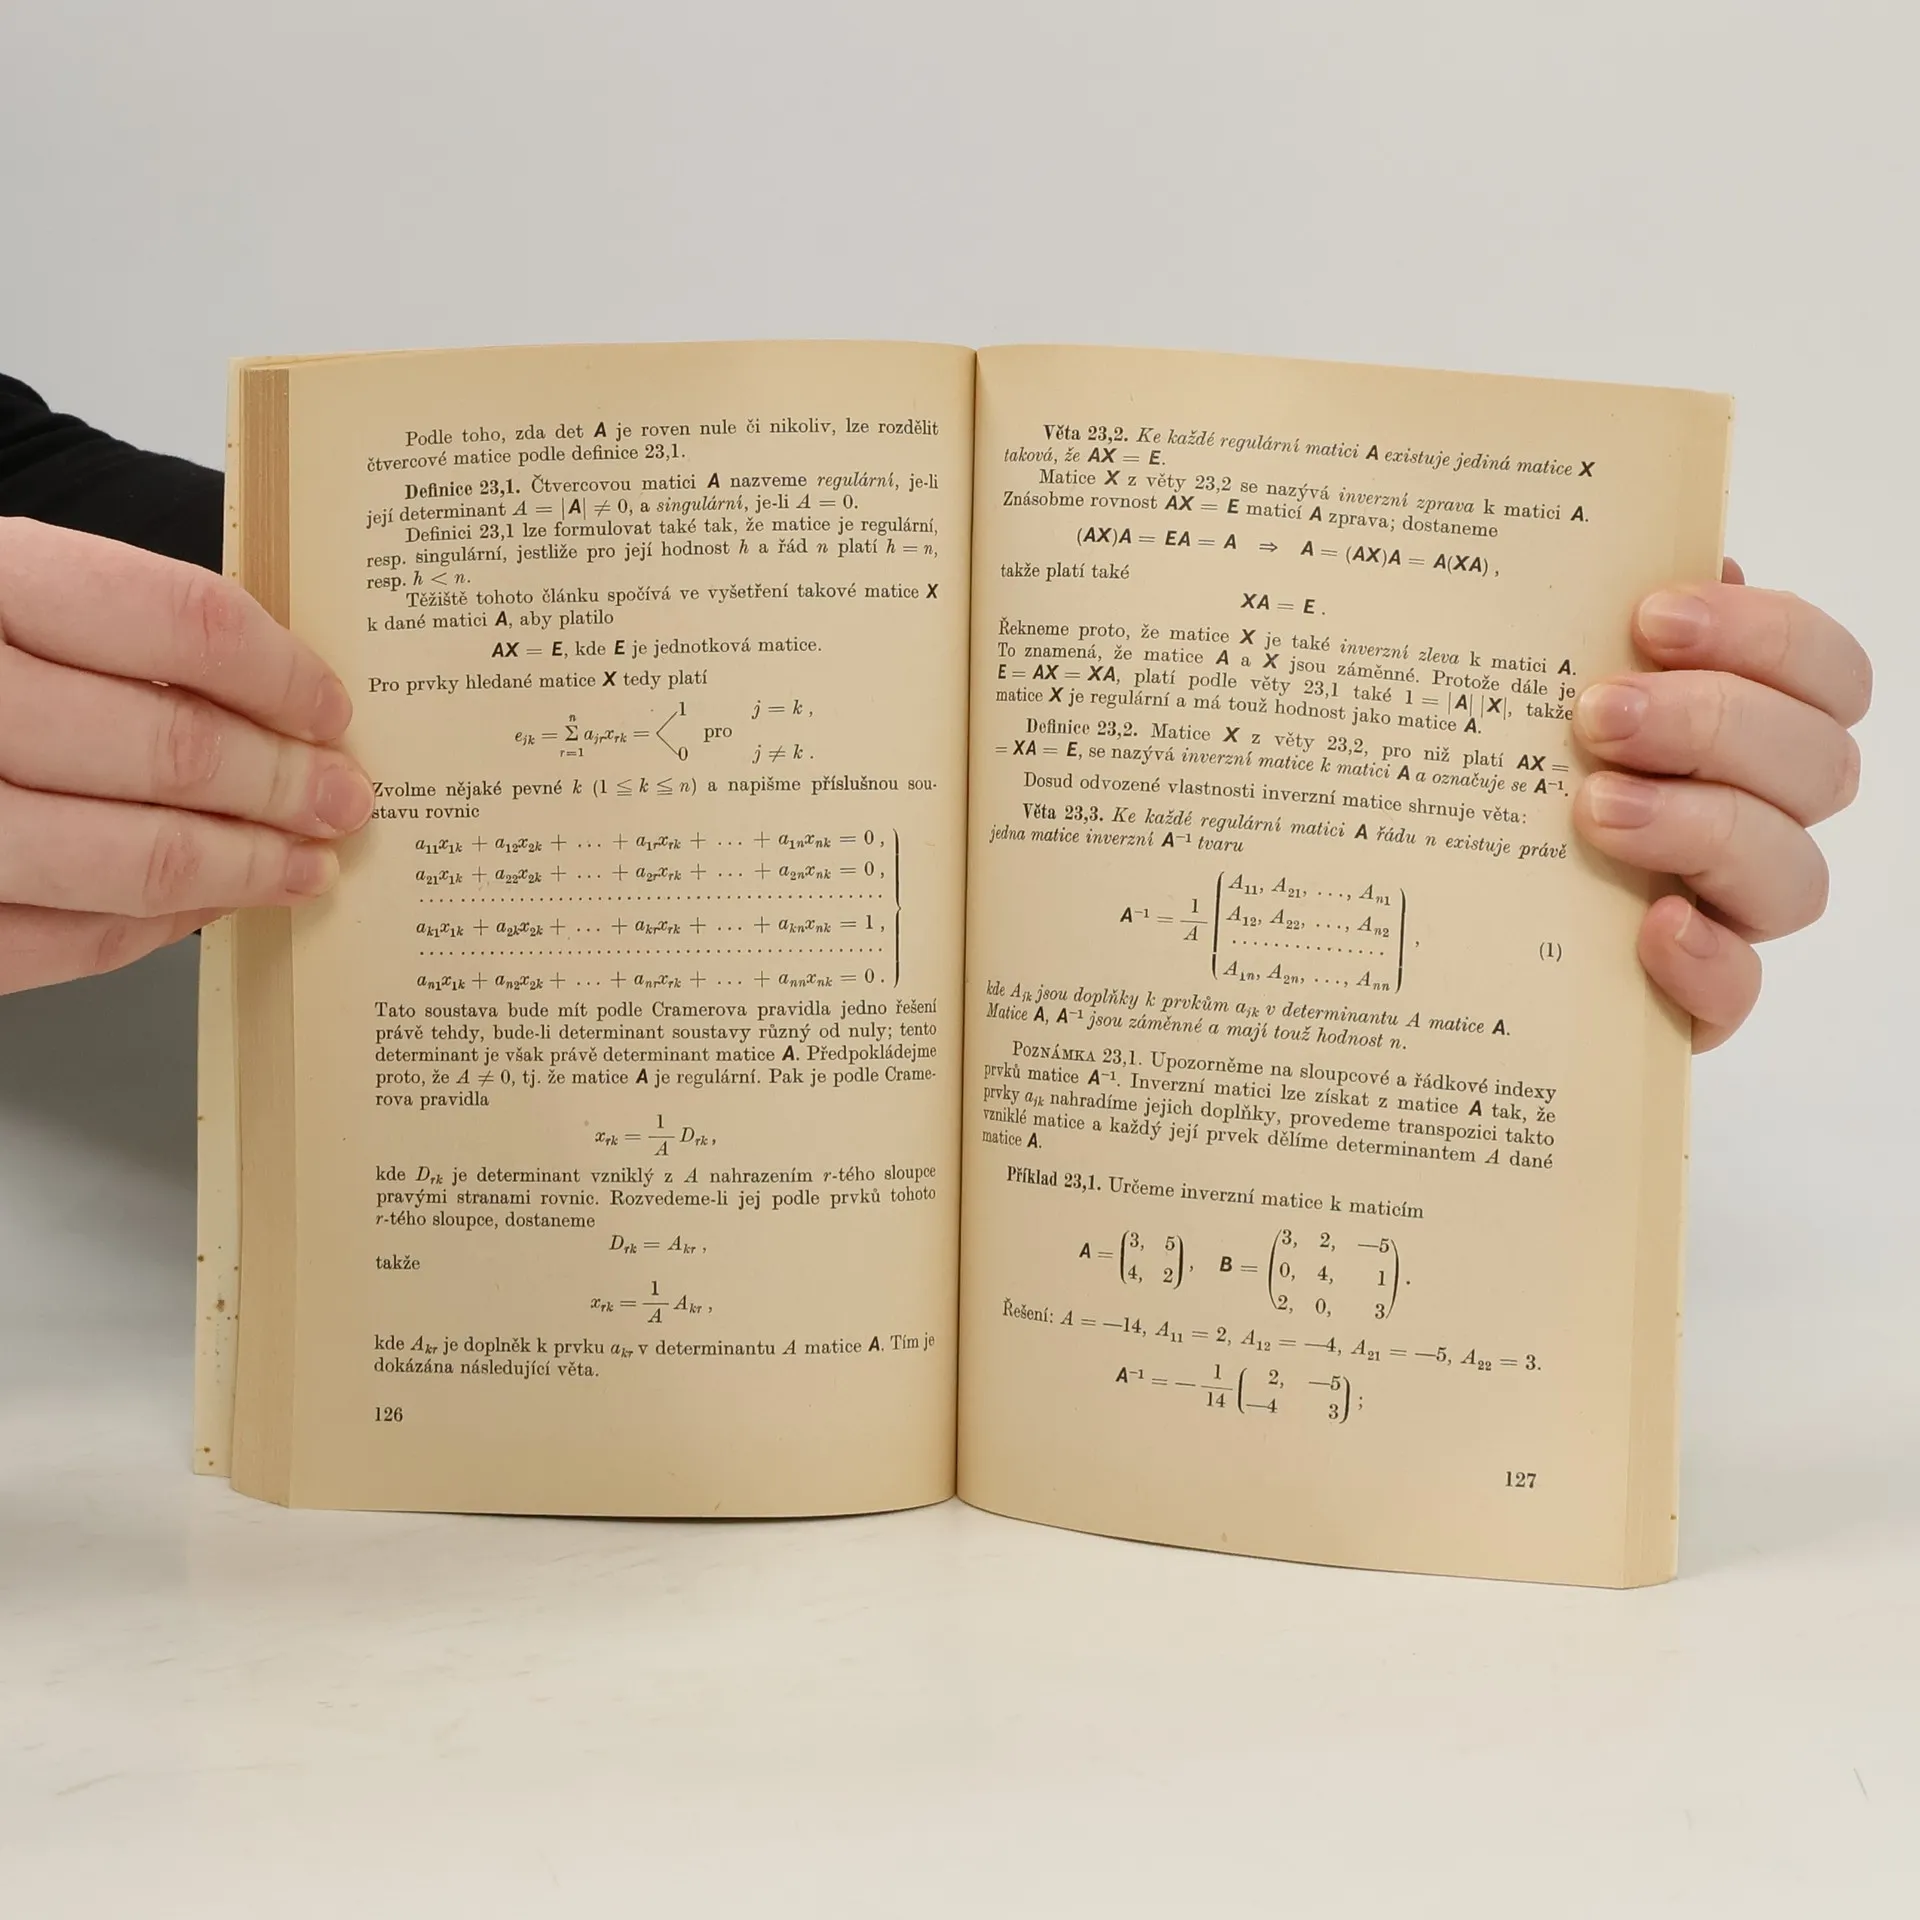 Podle toho, zda det A je roven nule či nikoliv, lze rozdělit
čtvercové matice podle definice 23,1.
Definice 23,1. Čtvercovou matici A nazveme regulární, je-li
její determinant A = |A| ≠ 0, a singulární, je-li A = 0.
Definici 23,1 lze formulovat také tak, že matice je regulární,
resp. singulární, jestliže pro její hodnost h a řád n platí h = n,
resp. h < n.
Těžiště tohoto článku spočívá ve vyšetření takové matice X
k dané matici A, aby platilo
AX = E, kde E je jednotková matice.
Pro prvky hledané matice X tedy platí
e_{jk} = \sum_{r=1}^{n} a_{jr}x_{rk} = < 1 pro j = k ,
0 j ≠ k .
Zvolme nějaké pevné k (1 ≦ k ≦ n) a napišme příslušnou sou-
stavu rovnic
a₁₁x₁ₖ + a₁₂x₂ₖ + ... + a₁ᵣxᵣₖ + ... + a₁ₙxₙₖ = 0 ,
a₂₁x₁ₖ + a₂₂x₂ₖ + ... + a₂ᵣxᵣₖ + ... + a₂ₙxₙₖ = 0 ,
. . . . . . . . . . . . . . . . . . . . . . . .
aₖ₁x₁ₖ + aₖ₂x₂ₖ + ... + aₖᵣxᵣₖ + ... + aₖₙxₙₖ = 1 ,
. . . . . . . . . . . . . . . . . . . . . . . .
aₙ₁x₁ₖ + aₙ₂x₂ₖ + ... + aₙᵣxᵣₖ + ... + aₙₙxₙₖ = 0 .
Tato soustava bude mít podle Cramerova pravidla jedno řešení
právě tehdy, bude-li determinant soustavy různý od nuly; tento
determinant je však právě determinant matice A. Předpokládejme
proto, že A ≠ 0, tj. že matice A je regulární. Pak je podle Crame-
rova pravidla
xᵣₖ = 1/A Dᵣₖ ,
kde Dᵣₖ je determinant vzniklý z A nahrazením r-tého sloupce
pravými stranami rovnic. Rozvedeme-li jej podle prvků tohoto
r-tého sloupce, dostaneme
Dᵣₖ = Aₖᵣ ,
takže
xᵣₖ = 1/A Aₖᵣ ,
kde Aₖᵣ je doplněk k prvku aₖᵣ v determinantu A matice A. Tím je
dokázána následující věta.
126
Věta 23,2. Ke každé regulární matici A existuje jediná matice X
taková, že AX = E.
Matice X z věty 23,2 se nazývá inverzní zprava k matici A.
Znásobme rovnost AX = E maticí A zprava; dostaneme
(AX)A = EA = A ⇒ A = (AX)A = A(XA) ,
takže platí také
XA = E .
Řekneme proto, že matice X je také inverzní zleva k matici A.
To znamená, že matice A a X jsou záměnné. Protože dále je
E = AX = XA, platí podle věty 23,1 také 1 = |A| |X|, takže
matice X je regulární a má touž hodnost jako matice A.
Definice 23,2. Matice X z věty 23,2, pro niž platí AX =
= XA = E, se nazývá inverzní matice k matici A a označuje se A⁻¹.
Dosud odvozené vlastnosti inverzní matice shrnuje věta:
Věta 23,3. Ke každé regulární matici A řádu n existuje právě
jedna matice inverzní A⁻¹ tvaru
A⁻¹ = 1/A ( A₁₁, A₂₁, ..., Aₙ₁
A₁₂, A₂₂, ..., Aₙ₂
. . . . . . . . . . . . . .
A₁ₙ, A₂ₙ, ..., Aₙₙ ) , (1)
kde Aⱼₖ jsou doplňky k prvkům aⱼₖ v determinantu A matice A.
Matice A, A⁻¹ jsou záměnné a mají touž hodnost n.
POZNÁMKA 23,1. Upozorněme na sloupcové a řádkové indexy
prvků matice A⁻¹. Inverzní matici lze získat z matice A tak, že
prvky aⱼₖ nahradíme jejich doplňky, provedeme transpozici takto
vzniklé matice a každý její prvek dělíme determinantem A dané
matice A.
Příklad 23,1. Určeme inverzní matice k maticím
A = (3, 5
4, 2) , B = (3, 2, —5
0, 4, 1
2, 0, 3) .
Řešení: A = —14, A₁₁ = 2, A₁₂ = —4, A₂₁ = —5, A₂₂ = 3.
A⁻¹ = — 1/14 ( 2, —5
—4 3) ;
127